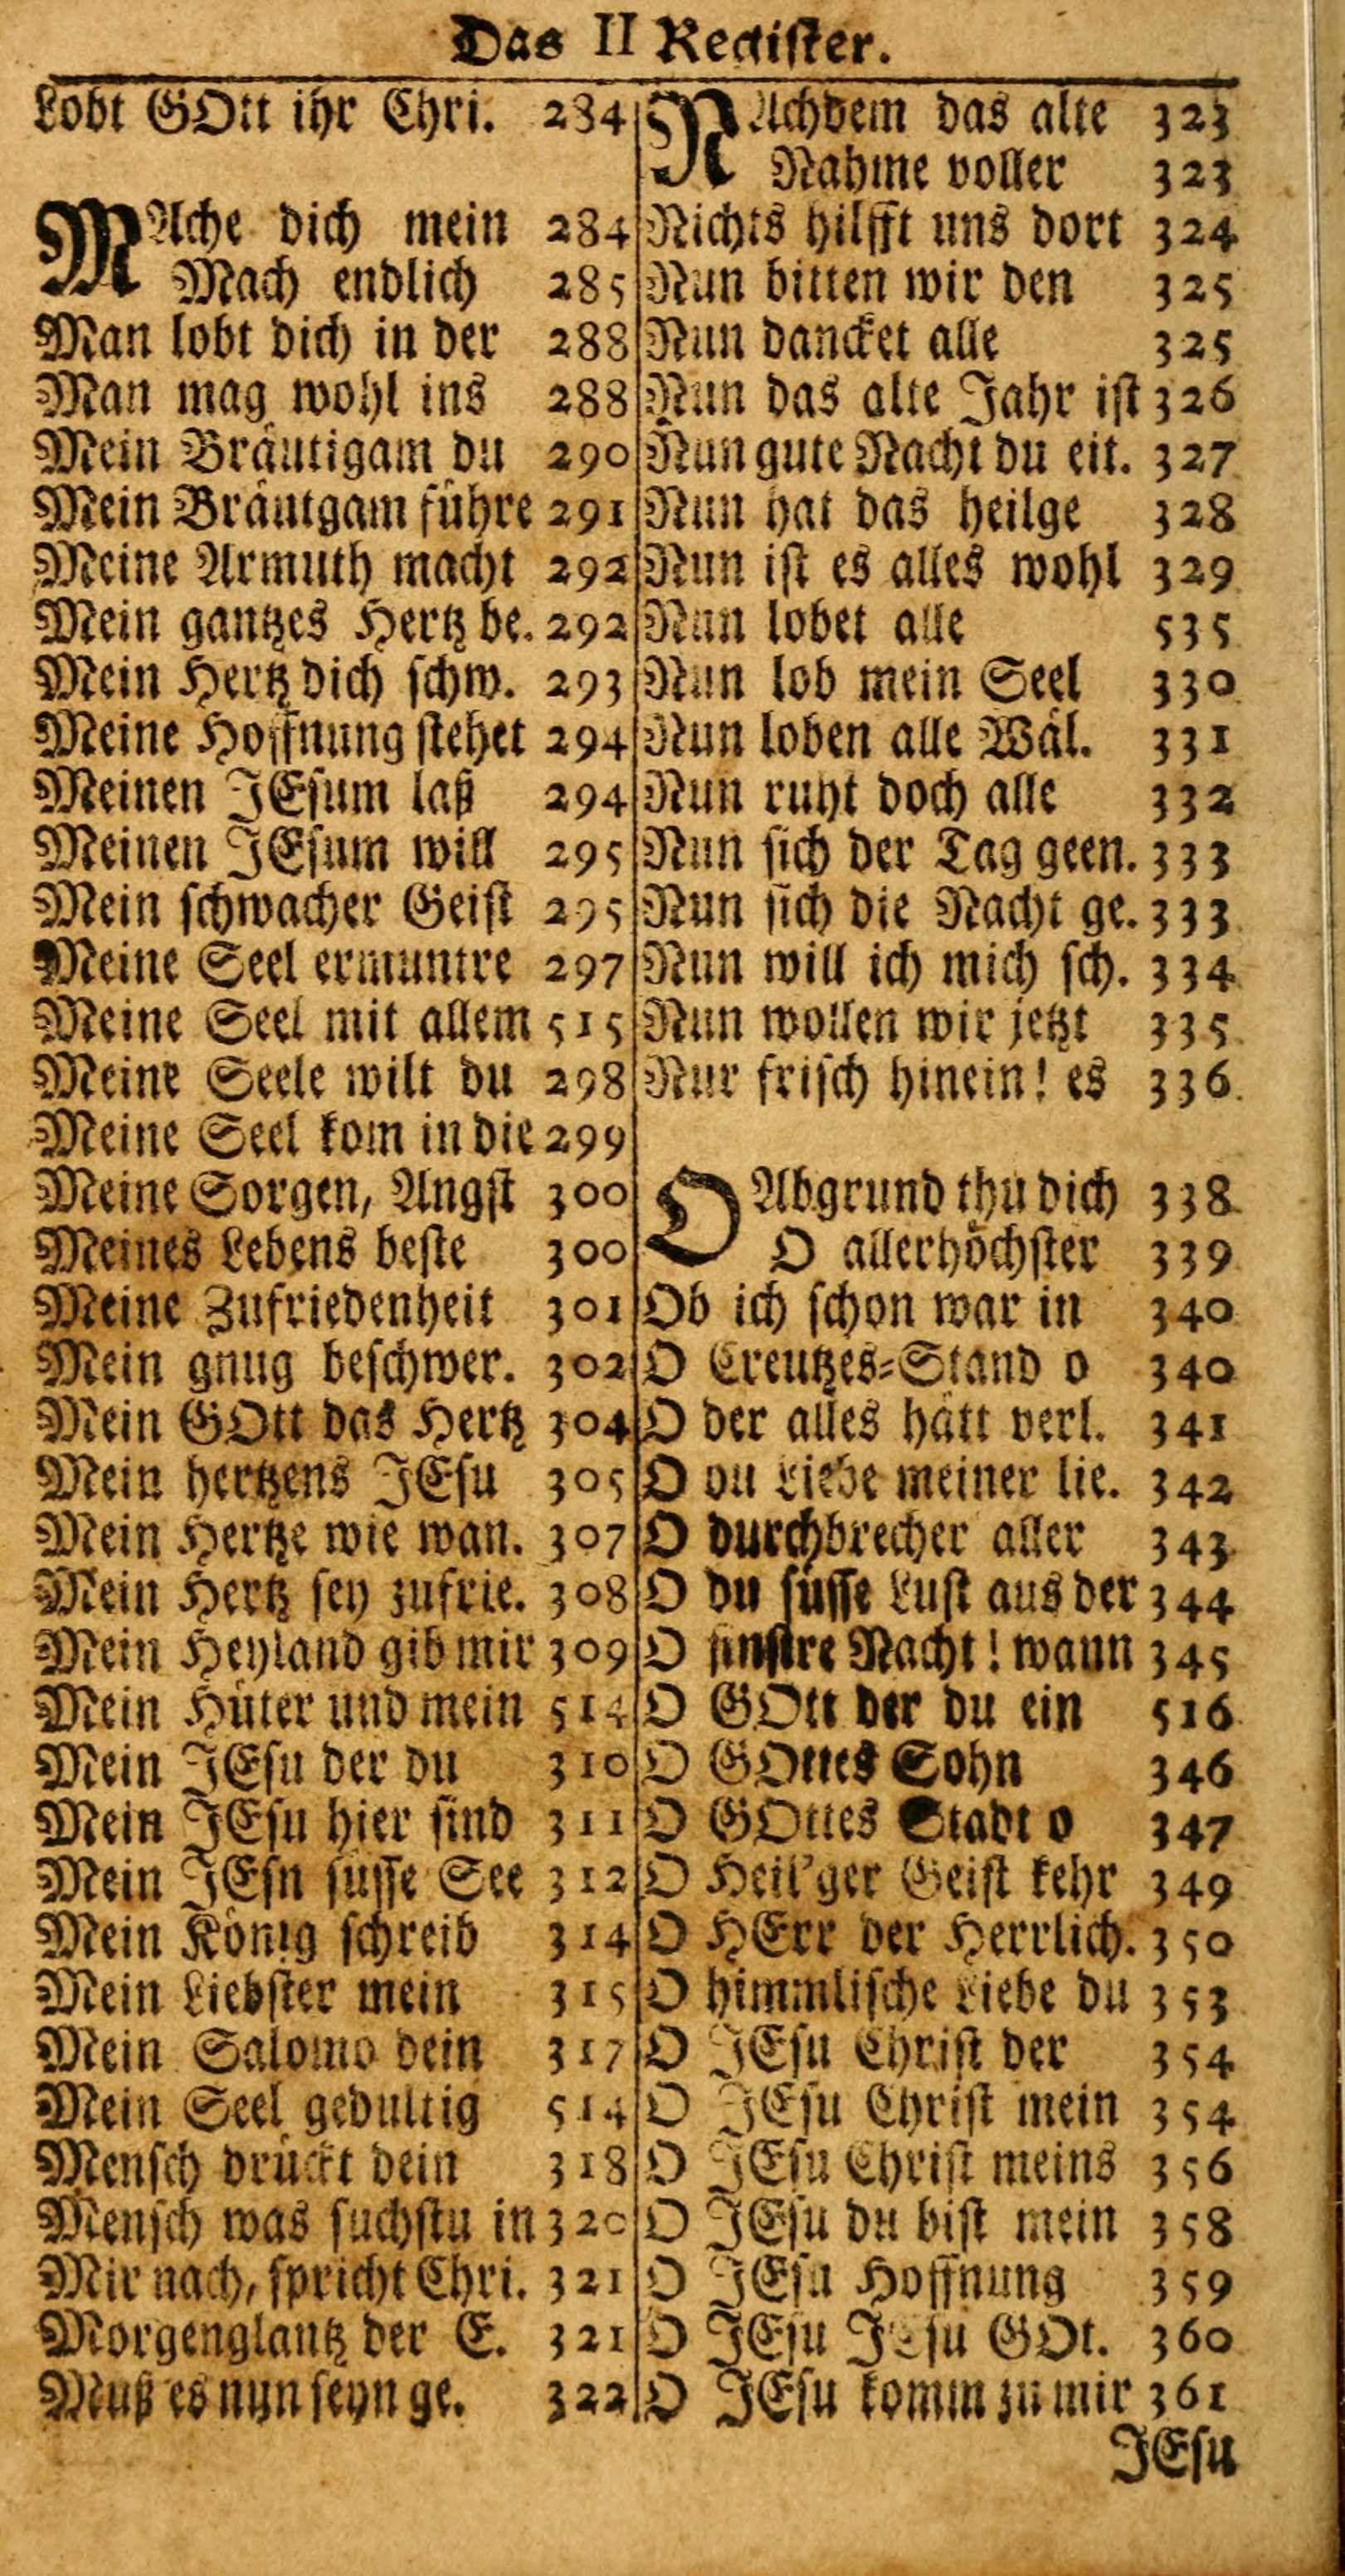 Das II Register.
Lobt GOtt ihr Chri. 284
MAche dich mein 284
Mach endlich 285
Man lobt dich in der 288
Man mag wohl ins 288
Mein Bräutigam du 290
Mein Bräutgam führe 291
Meine Armuth macht 292
Mein gantzes Hertz be. 292
Mein Hertz dich schw. 293
Meine Hoffnung stehet 294
Meinen JEsum laß 294
Meinen JEsum will 295
Mein schwacher Geist 295
Meine Seel ermuntre 297
Meine Seel mit allem 515
Meine Seele wilt du 298
Meine Seel kom in die 299
Meine Sorgen, Angst 300
Meines Lebens beste 300
Meine Zufriedenheit 301
Mein gnug beschwer. 302
Mein GOtt das Hertz 304
Mein hertzens JEsu 305
Mein Hertze wie wan. 307
Mein Hertz sey zufrie. 308
Mein Heyland gib mir 309
Mein Hüter und mein 514
Mein JEsu der du 310
Mein JEsu hier sind 311
Mein JEsn süsse See 312
Mein König schreib 314
Mein Liebster mein 315
Mein Salomo dein 317
Mein Seel gedultig 514
Mensch drückt dein 318
Mensch was suchstu in 320
Mir nach, spricht Chri. 321
Morgenglantz der E. 321
Muß es nun seyn ge. 322
NAchdem das alte 323
Nahme voller 323
Nichts hilfft uns dort 324
Nun bitten wir den 325
Nun dancket alle 325
Nun das alte Jahr ist 326
Nun gute Nacht du eit. 327
Nun hat das heilge 328
Nun ist es alles wohl 329
Nun lobet alle 535
Nun lob mein Seel 330
Nun loben alle Wäl. 331
Nun ruht doch alle 332
Nun sich der Tag geen. 333
Nun sich die Nacht ge. 333
Nun will ich mich sch. 334
Nun wollen wir jetzt 335
Nur frisch hinein! es 336
O Abgrund thu dich 338
O allerhöchster 339
Ob ich schon war in 340
O Creutzes-Stand o 340
O der alles hätt verl. 341
O du Liebe meiner lie. 342
O durchbrecher aller 343
O du süsse Lust aus der 344
O finstre Nacht! wann 345
O GOtt der du ein 516
O GOttes Sohn 346
O GOttes Stadt o 347
O Heil'ger Geist kehr 349
O HErr der Herrlich. 350
O himmlische Liebe du 353
O JEsu Christ der 354
O JEsu Christ mein 354
O JEsu Christ meins 356
O JEsu du bist mein 358
O JEsu Hoffnung 359
O JEsu JEsu GOt. 360
O JEsu komm zu mir 361
JEsu